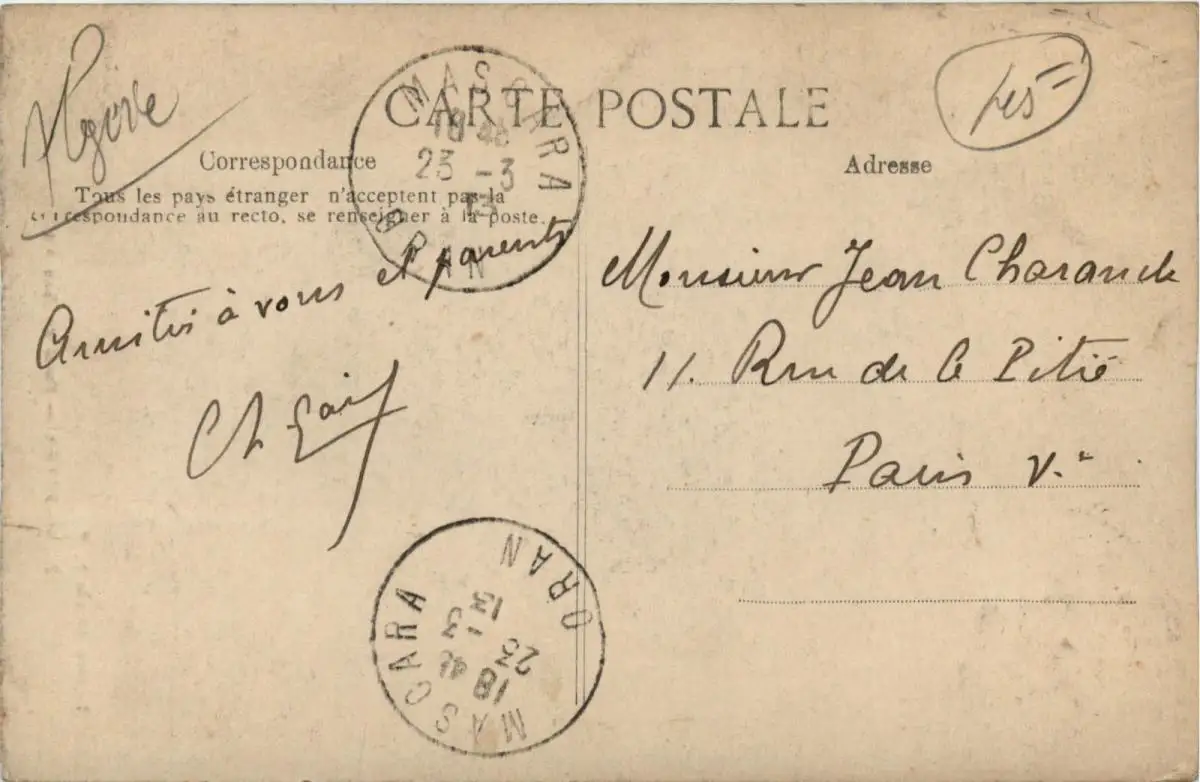 Algérie
CARTE POSTALE
Correspondance
Tous les pays étranger n'acceptent pas la
correspondance au recto, se renseigner à la poste.
Adresse
MASCARA
18 45
23 -3
13
ORAN
Amitiés à vous et parents
Ch
Monsieur Jean
11. Rue de la Pitié
Paris V.e
MASCARA
18 45
23 3
13
ORAN